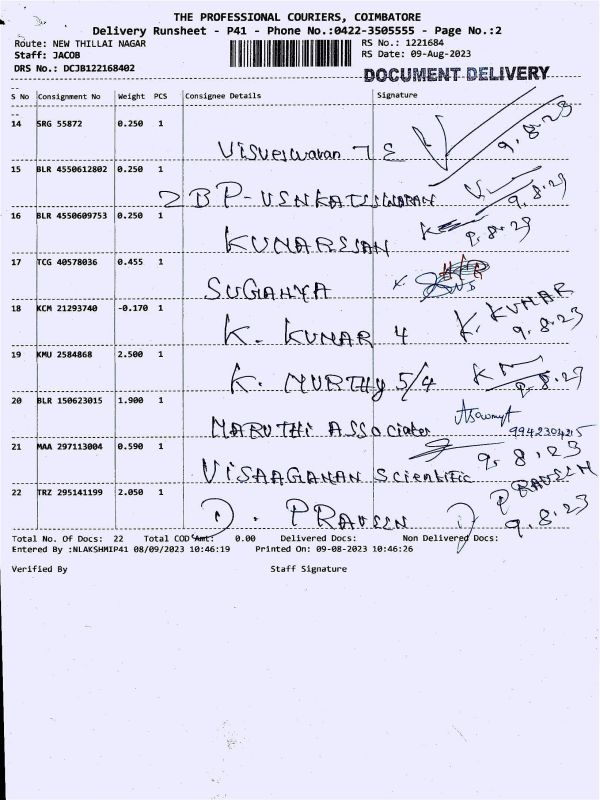 THE PROFESSIONAL COURIERS, COIMBATORE
Delivery Runsheet - P41 - Phone No.:0422-3505555 - Page No.:2
Route: NEW THILLAI NAGAR RS No.: 1221684
Staff: JACOB RS Date: 09-Aug-2023
DRS No.: DCJB122168402 DOCUMENT DELIVERY
S No Consignment No Weight PCS Consignee Details Signature
14 SRG 55872 0.250 1 Visveswaran 7 E 9.8.23
15 BLR 4550612802 0.250 1 2 B P-VENKATESWARAN 9.8.23
16 BLR 4550609753 0.250 1 KUNARSSAN 9.8.23
17 TCG 40578036 0.455 1 SUGANYA
18 KCM 21293740 -0.170 1 K. KUMAR 4 K. KUMAR 9.8.23
19 KMU 2584868 2.500 1 K. MURTHY 5/4 9.8.23
20 BLR 150623015 1.900 1 MARUTHI ASSociates
21 MAA 297113004 0.590 1 VISAAGAHAN Scientific 9.8.23
22 TRZ 295141199 2.050 1 D. PRAVEEN PRAVEEN 9.8.23
Total No. Of Docs: 22 Total COD Amt: 0.00 Delivered Docs: Non Delivered Docs:
Entered By :NLAKSHMIP41 08/09/2023 10:46:19 Printed On: 09-08-2023 10:46:26
Verified By Staff Signature